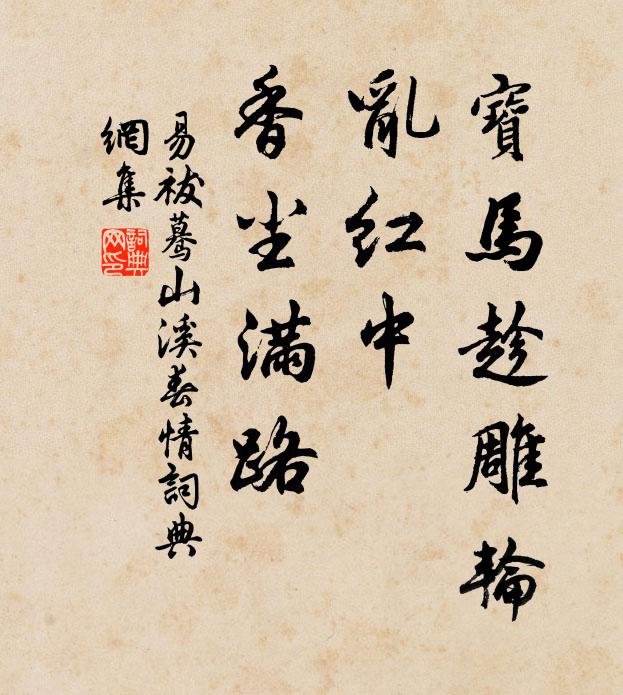 寶馬趁雕輪
亂紅中
香尘滿路
易祓蓦山溪春情詞典
網集
詞典
网印